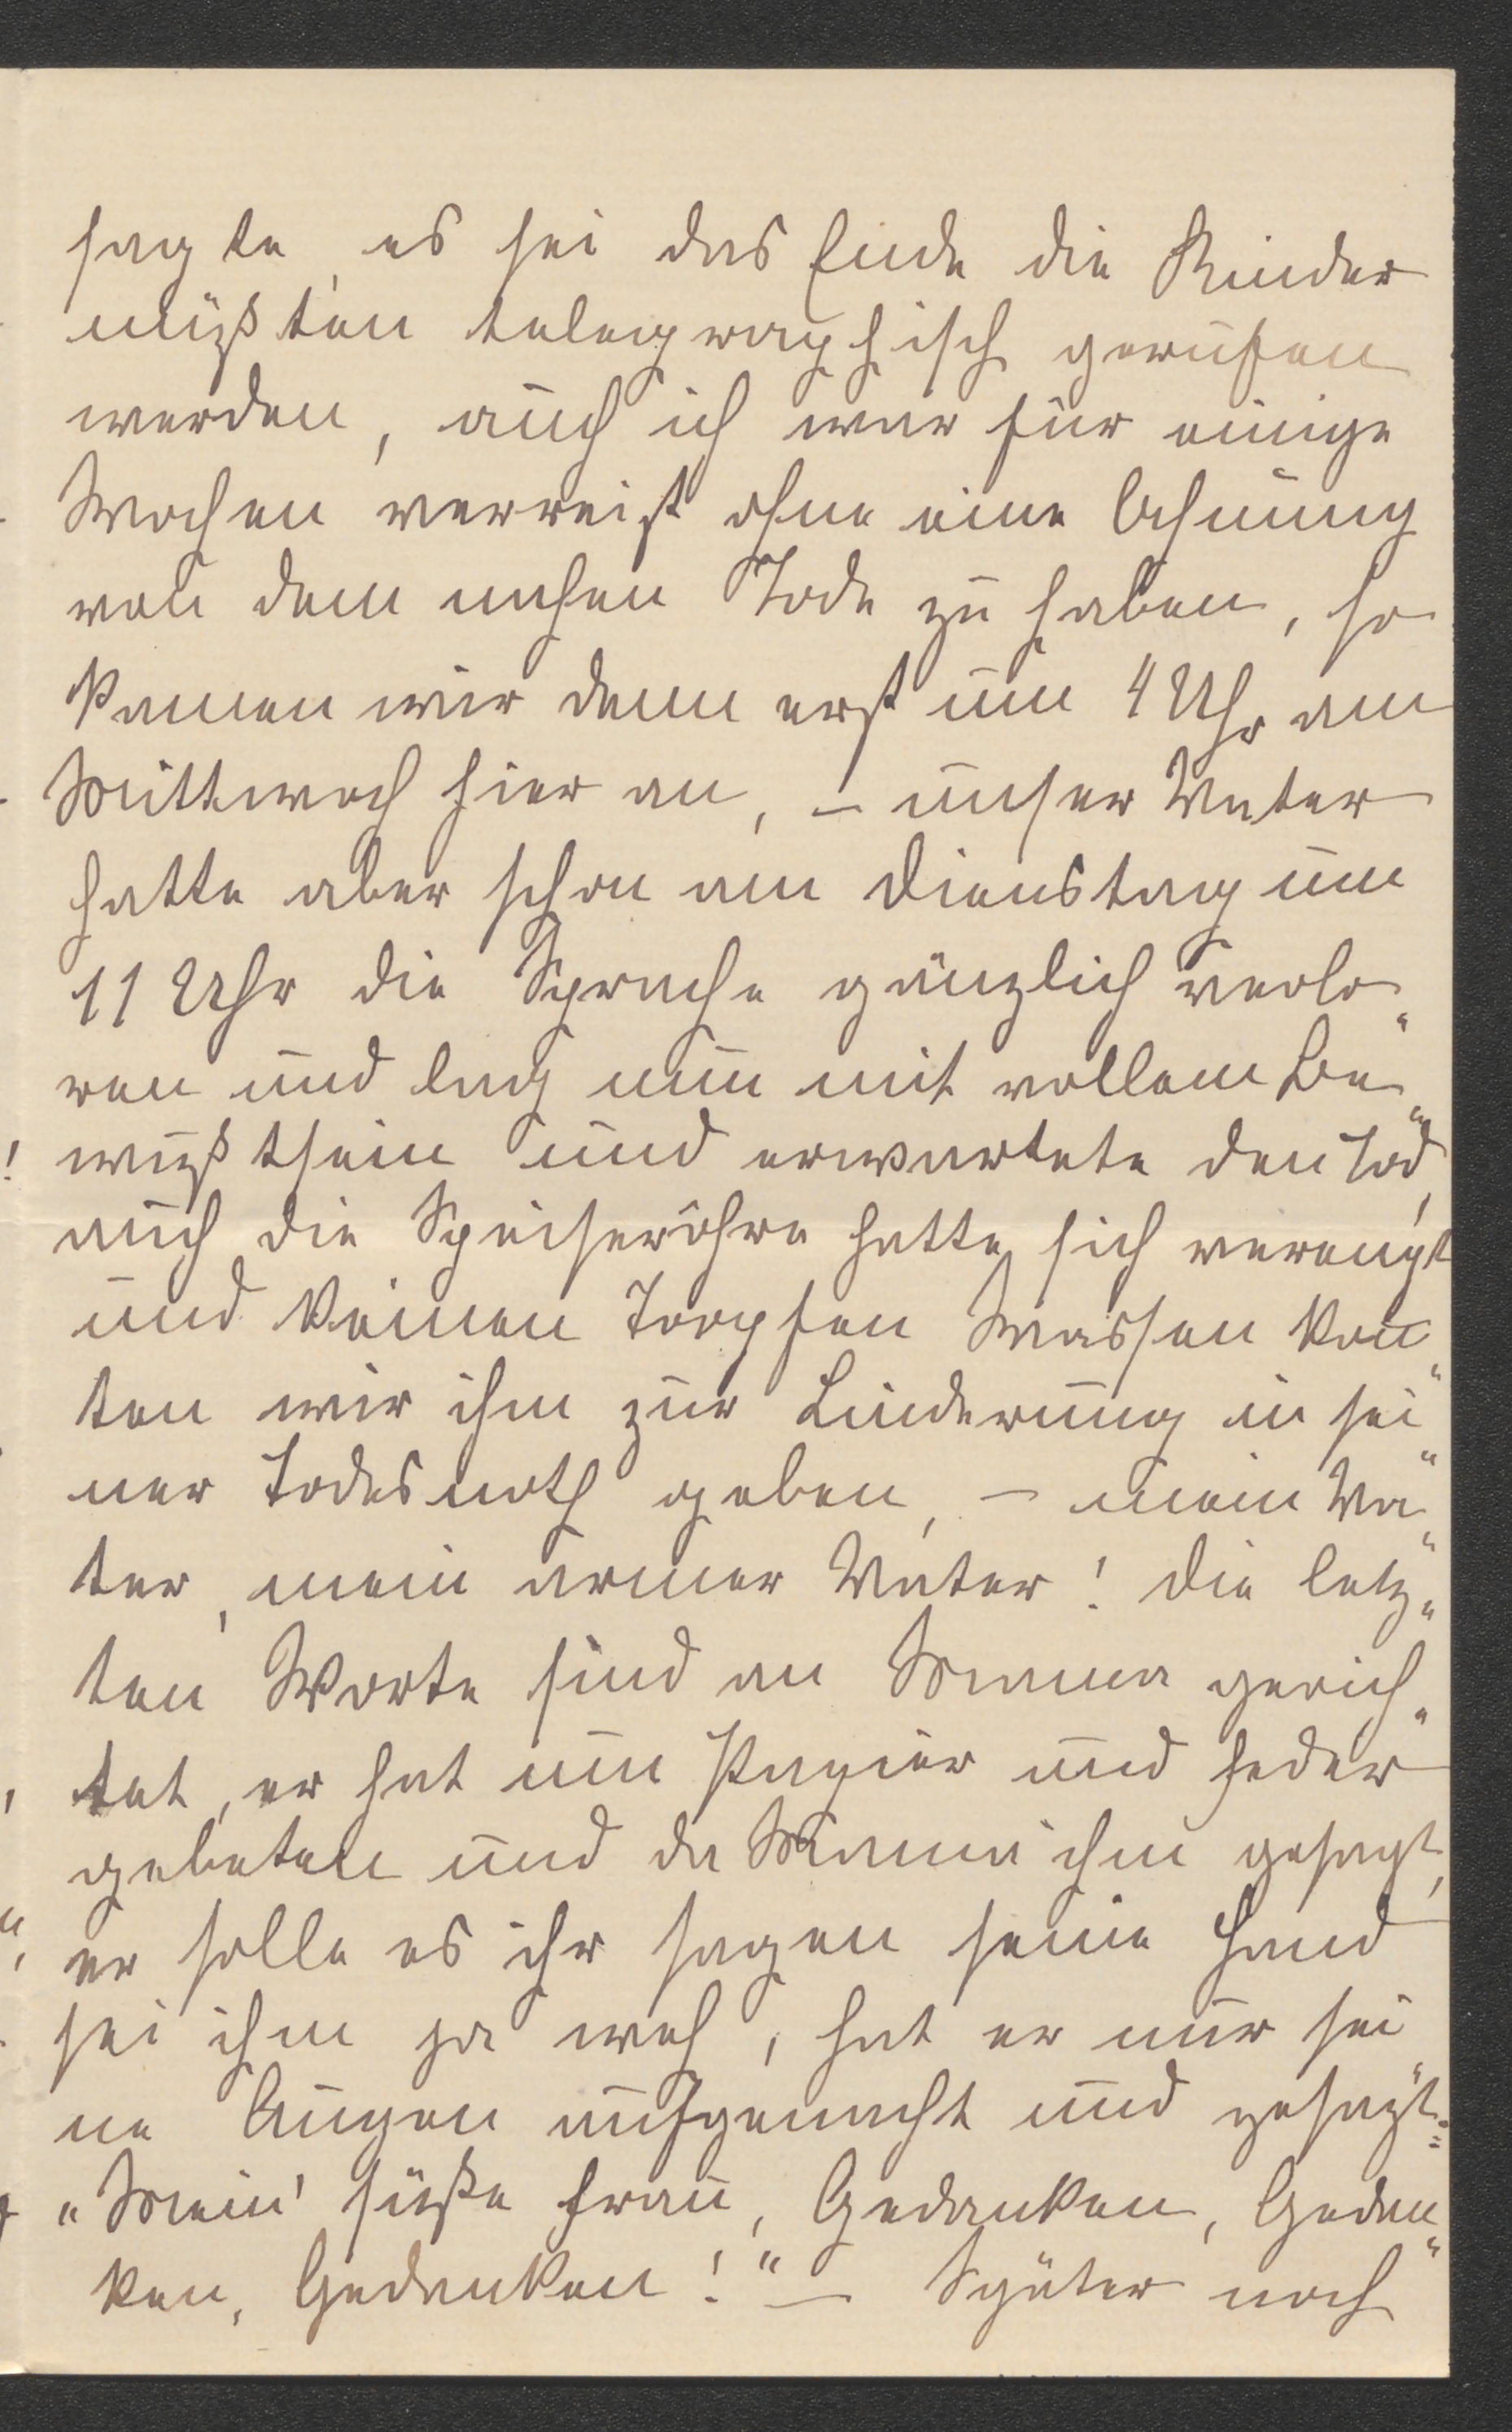 sagte, es sei das Ende die Kinder
müßten telegraphisch gerufen
werden, auch ich war für einige
Wochen verreist ohne eine Ahnung
von dem nahen Tode zu haben, so
kamen wir denn erst um 4 Uhr am
Mittwoch hier an, – unser Vater
hatte aber schon am Dienstag um
11 Uhr die Sprache gänzlich verlo„
ren und lag nun mit vollem Be„
wußtsein und erwartete den Tod,
auch die Speiseröhre hatte sich verengt
und keinen Tropfen Wasser kon̄„
ten wir ihm zur Linderung in sei„
ner Todesnoth geben, – mein Va„
ter, mein armer Vater! Die letz„
ten Worte sind an Mama gerich„
tet, er hat um Papier und Feder
gebeten und da Mama ihm gesagt,
er solle es ihr sagen seine Hand
sei ihm ja weh, hat er nur sei„
ne Augen aufgemacht und gesagt:
„Mein' süße Frau, Gedanken, Gedan„
ken, Gedanken!“ – Später noch